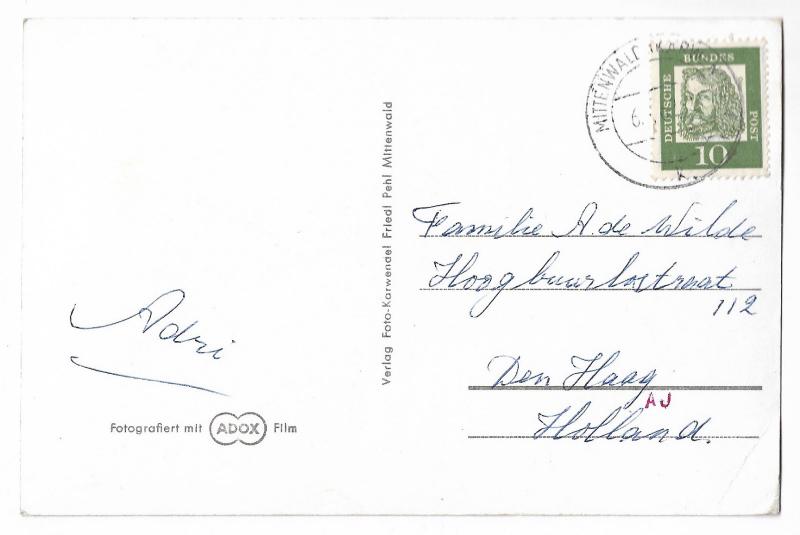 MITTENWALD (KARW
6.
k
DEUTSCHE
BUNDES
POST
10
Verlag Foto-Karwendel Friedl Pehl Mittenwald
Familie A. de Wilde
Hoogbuurlostraat
112
Den Haag
AJ
Holland.
Adri
Fotografiert mit ADOX Film